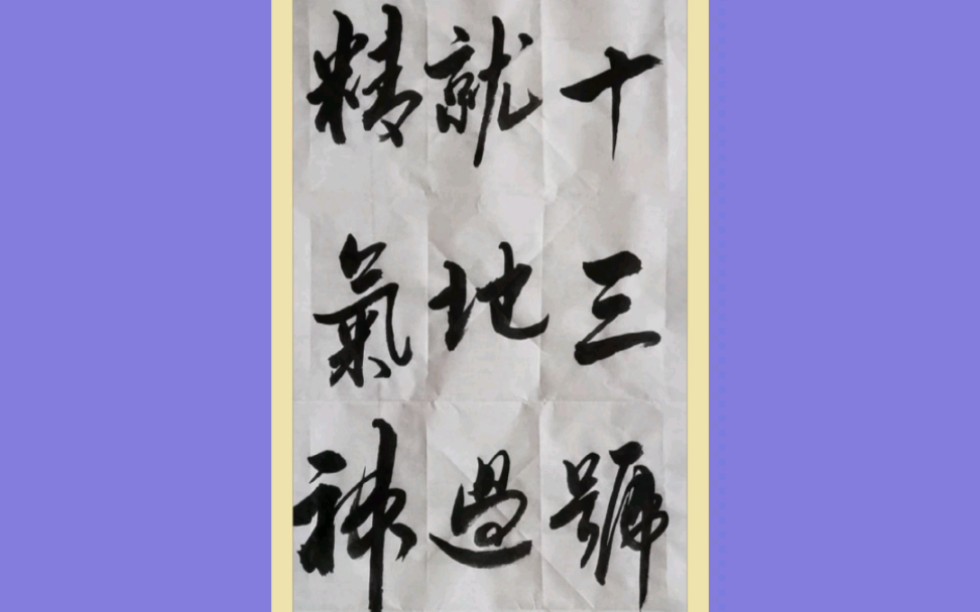 十三號
就地過
精氣神